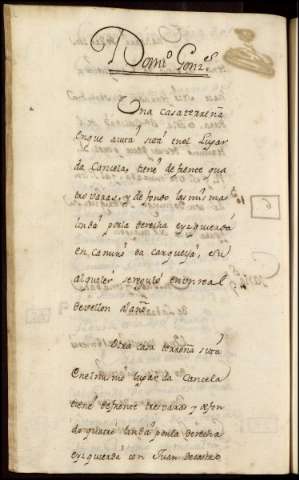 Domº Gonzs
Una casa terreña
en que avita sita en el Lugar
da Cancela, tiene de frente qua
tro varas, y de fondo las mismas
linda por la derecha e yzquierda
en camino da Carqueyja, e su
alquiler se regulo en un real
de vellon al año
6
Otra casa terreña sita
en el mismo lugar da Cancela
tiene de frente tres varas y de fon
do quatro linda por la derecha
e yzquierda con Juan de castro